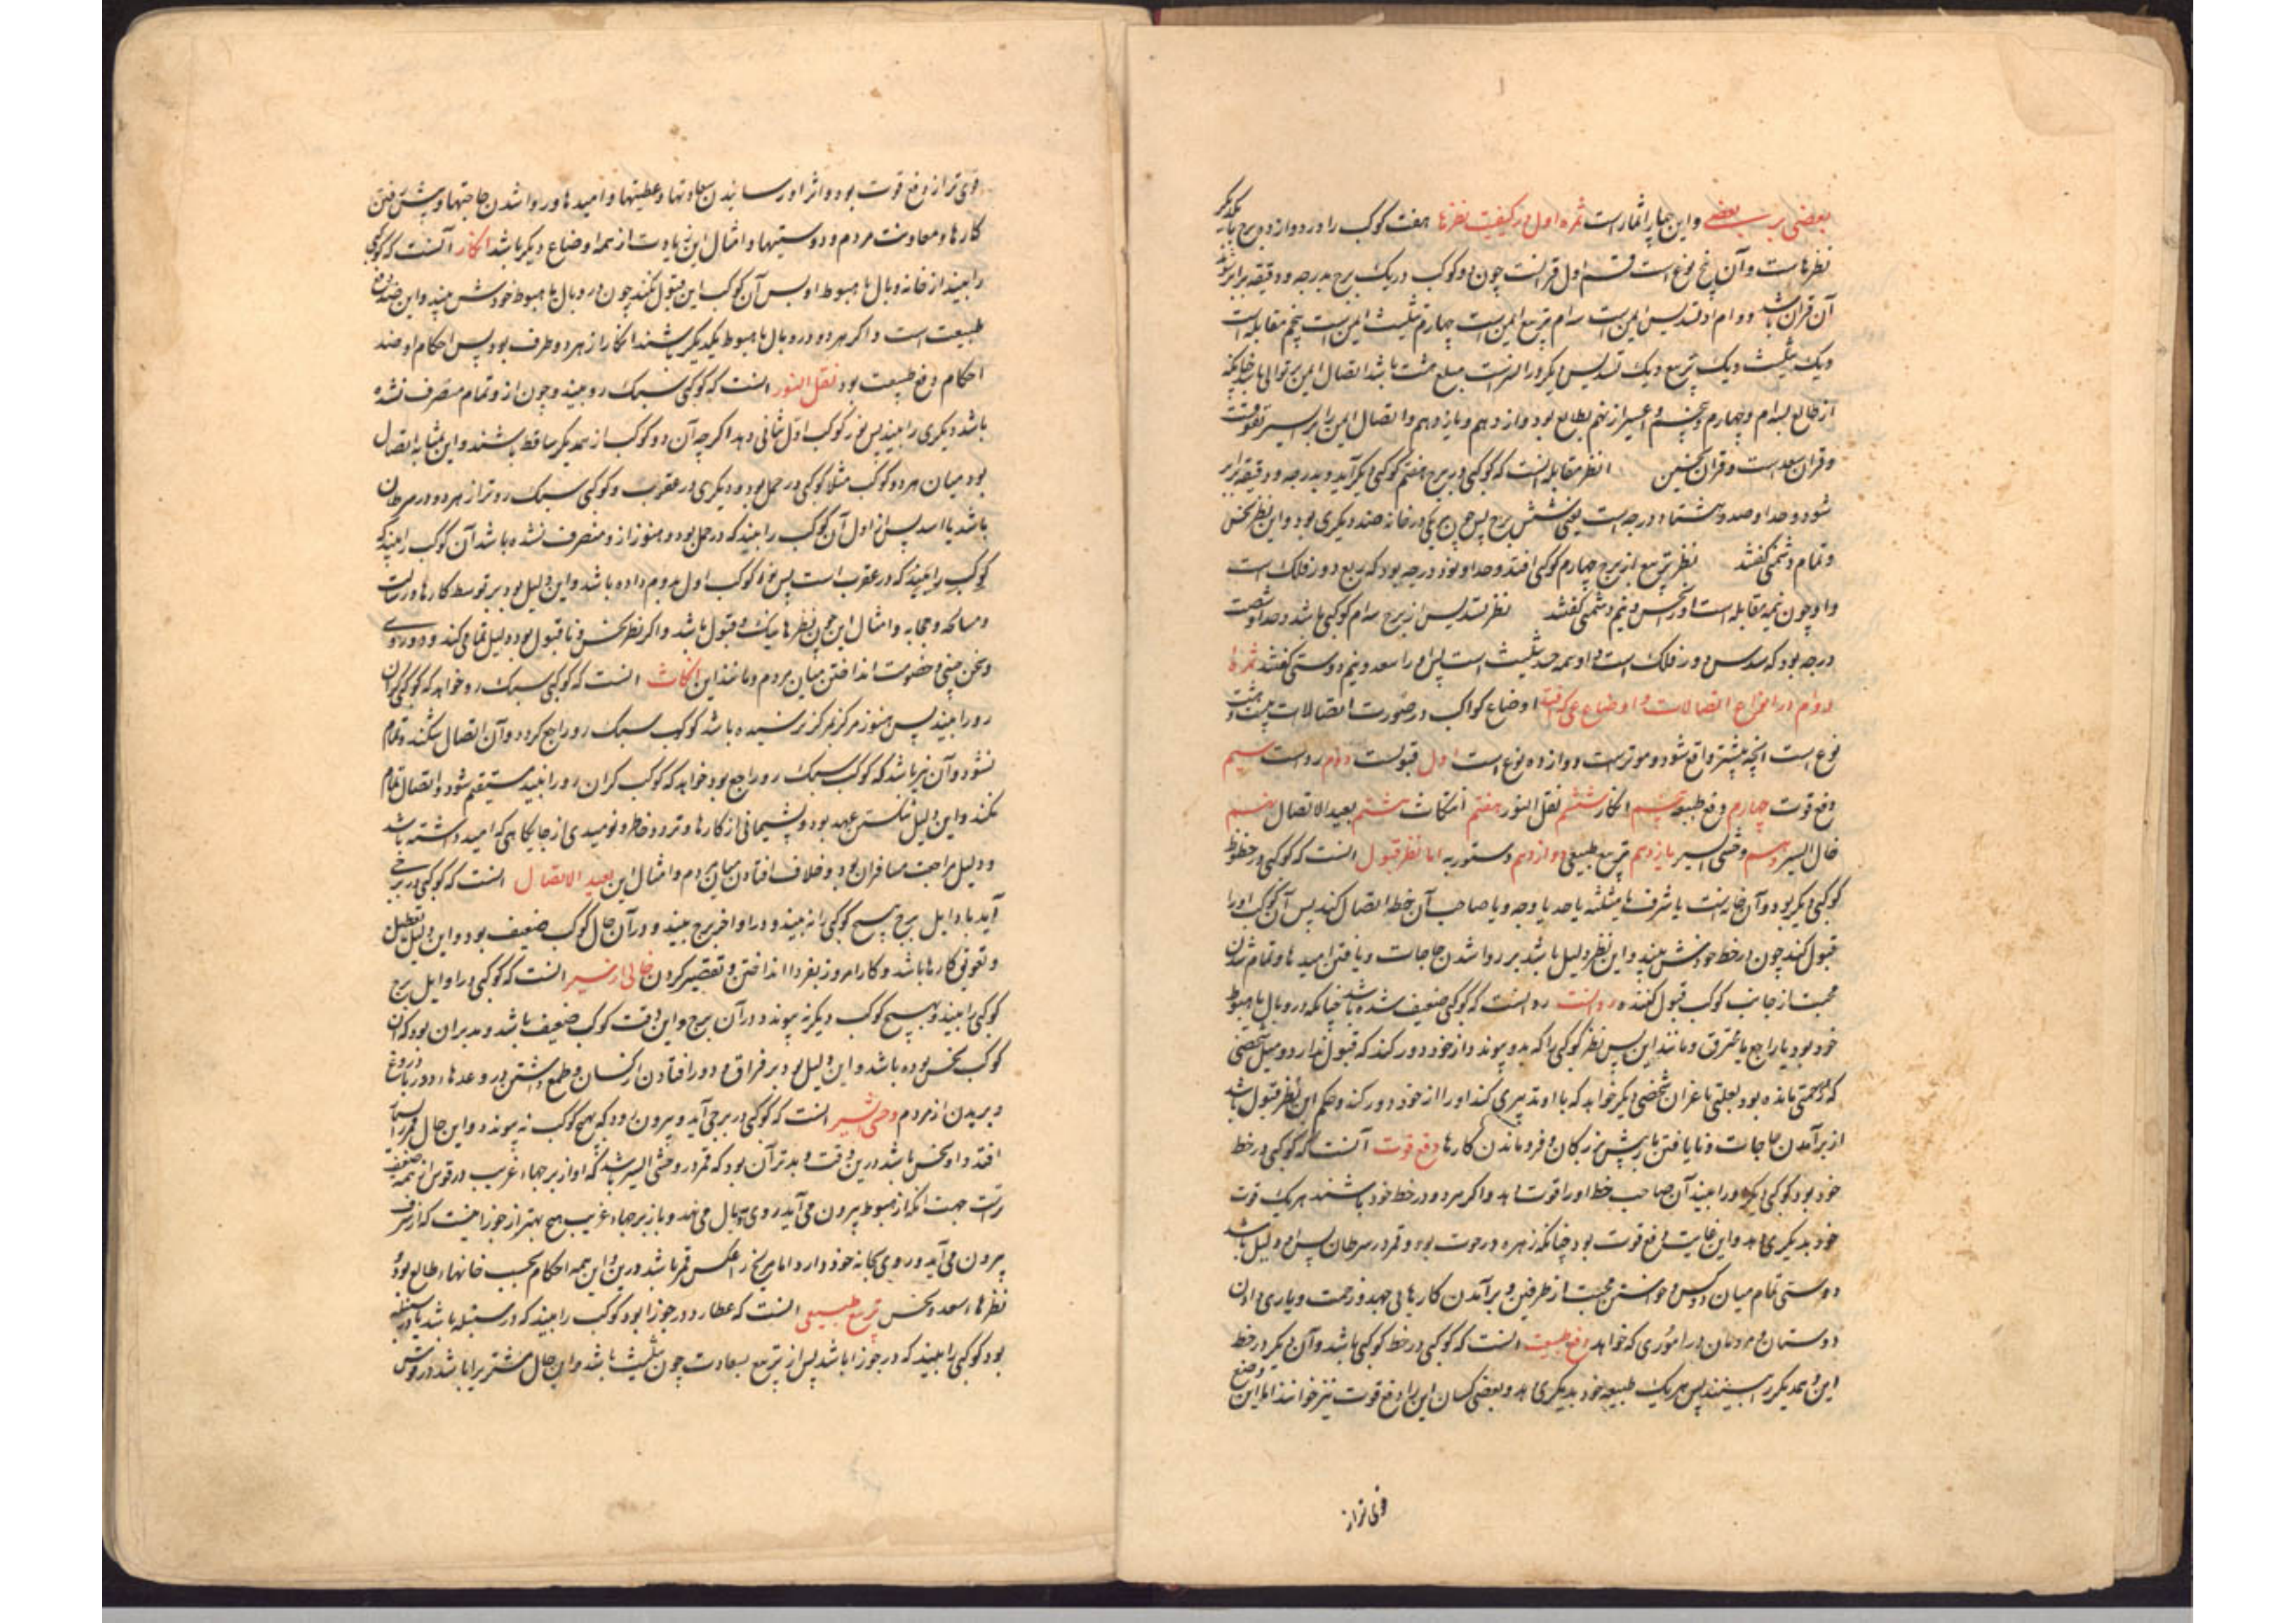 بعضی بر بعضی و این چهار اثمار است ثمره اول در کیفیت نظرها هفت کوکب را در دوازده برج با یکدیگر
نظرهاست و آن پنج نوع است قسم اول قرانست چون دو کوکب در یک برج بدرجه و دقیقه برابر شوند
آن قران باشد دوم تسدیس ایمن است سوم تربیع ایمن است چهارم تثلیث ایمن است پنجم مقابله است
و یک تثلیث و یک تربیع و یک تسدیس دیگر ور است مبلغ هشت باشد اتصال ایمن بر توالی باشد چنانکه
از طالع بسوم و چهارم و پنجم و ایسر از نهم بطالع بود و از دهم و یازدهم و اتصال ایمن را بر ایسر تفوقست
و قران سعد است و قران نحسین انظر مقابله آنست که کوکبی در برج هفتم کوکبی دیگر آید و بدرجه و دقیقه برابر
شود و حد او صد و هشتاد درجه است یعنی شش برج پس چون هر یکی در خانه ضد دیگری بود و این نظر نحس
و تمام دشمنی گفتند نظر تربیع از برج چهارم کوکبی افتد و حد او نود درجه بود که ربع دور فلک است
و او چون نیمه مقابله است او را نحس و نیم دشمنی گفتند نظر تسدیس از برج سوم کوکبی باشد و حد او شصت
درجه بود که سدس دور فلک است و او نیمه حد تثلیث است پس او را سعد و نیم دوستی گفتند ثمره
دوم در امزاج اتصالات و اوضاع اوضاع کواکب در صورت اتصالات بیست و هشت
نوع است آنچه بیشتر واقع شود و موثرست دوازده نوع است اول قبولست دوم ردست سیم
دفع قوت چهارم دفع طبیعه پنجم انکار ششم نقل النور هفتم انتکاث هشتم بعید الاتصال نهم
خالی السیر دهم وحشی السیر یازدهم تربیع طبیعی دوازدهم دستوریه اما نظر قبول آنست که کوکبی در حظوظ
کوکبی دیگر بود و آن خانه است یا شرف یا مثلثه یا حد یا وجه و با صاحب آن خط اتصال کند پس آن کوکب او را
قبول کند چون در خط خودش بیند و این نظر دلیل باشد بر روا شدن حاجات و یافتن امیدها و تمام شدن
محبت از جانب کوکب قبول کننده رد است رد آنست که کوکبی ضعیف شده باشد چنانکه در وبال یا هبوط
خود بود یا راجع یا محترق و مانند این پس نظر کوکبی را که بدو پیوندد از خود دور کند که قبول ندارد و مثل شخصی
که زحمتی مانده بود بعلتی یا غیر آن شخصی دیگر خواهد که با او تدبیری کند او را از خود دور کند و حکم این نظر قبول باشد
از برآمدن حاجات و نایافتن بار پیش بزرگان و فرو ماندن کارها دفع قوت آنست که کوکبی در خط
خود بود کوکبی دیگر او را بیند آن صاحب خط او را قوت دهد و اگر هر دو در خط خود باشند هر یک قوت
خود بدیگری دهد و این غایت دفع قوت بود چنانکه زهره در حوت بود و قمر در سرطان پس او دلیل باشد
دوستی تمام میان دو کس و خواستن محبت از طرفین و برآمدن کارها بی جهد و زحمت و یاری دادن
دوستان و مردمان در اموری که خواهد دفع طبیعت آنست که کوکبی در خط کوکبی باشد و آن دیگر در خط
این و همدیگر را بینند پس هر یک طبیعه خود بدیگری دهد و بعضی کسان این را دفع قوت نیز خوانند اما این وضع
قوی تر از
قوی تر از دفع قوت بود و اثر او رسانیدن سعادتها و عطیتها و امیدها و روا شدن حاجتها و پیش رفتن
کارها و معاونت مردم و دوستیها و امثال این زیادت از همه اوضاع دیگر باشد انکار آنست که کوکبی
را بیند از خانه وبال یا هبوط او پس آن کوکب این قبول نکند چون در وبال یا هبوط خودش بیند و این ضد دفع
طبیعت است و اگر هر دو در وبال یا هبوط یکدیگر باشند انکار از هر دو طرف بود پس احکام او ضد
احکام دفع طبیعت بود نقل النور آنست که کوکبی سبک رو بیند و چون از و تمام منصرف نشده
باشد دیگری را بیند پس نور کوکب اول بثانی دهد اگرچه آن دو کوکب از همدیگر ساقط باشند و این بمثابه اتصال
بود میان هر دو کوکب مثلا کوکبی در حمل بود و دیگری در عقرب و کوکبی سبک روتر از هر دو در سرطان
باشد یا اسد پس از اول آن کوکب را بیند که در حمل بود و هنوز از و منصرف نشده باشد آن کوکب را بیند که
کوکب را بیند که در عقرب است پس نور کوکب اول بدوم داده باشد و این دلیل بود بر توسط کارها و رسالت
و مصالحه و محابه و امثال این چون نظرها نیک و قبول باشد و اگر نظر نحس و ناقبول بود دلیل نمامی کند و دوروی
و سخن چینی و خصومت انداختن میان مردم و مانند این انتکاث آنست که کوکبی سبک رو خواهد که کوکبی گران
رو را بیند پس هنوز مرکز بمرکز نرسیده باشد کوکب سبک رو راجع گردد و آن اتصال شکند و تمام
نشود و آن نیز باشد که کوکب سبک رو راجع بود خواهد که کوکب گران رو را بیند مستقیم شود و اتصال تمام
نکند و این دلیل شکستن عهد بود و پشیمانی از کارها و تردد خاطر و نومیدی از جایگاهی که امید داشته باشد
و دلیل مراجعت مسافران بود و خلاف افتادن میان مردم و امثال این بعید الاتصال آنست که کوکبی در برجی
آید باوایل برج هیچ کوکبی را نبیند و در اواخر برج بیند و در آن حال کوکب ضعیف بود و این دلیل تعطیل
و تعویق کارها باشد و کار امروز بفردا انداختن و تقصیر کردن خالی السیر آنست که کوکبی در اوایل برج
کوکبی را بیند و بهیچ کوکب دیگر نه پیوندد در آن برج و این وقت کوکب ضعیف باشد و بد بر آن بود که آن
کوکب نحس بوده باشد و این دلیل بود بر فراق و دور افتادن از کسان و طمع داشتن در وعدهاء دروغ
و بریدن از مردم وحشی السیر آنست که کوکبی در برجی آید و بیرون رود که بهیچ کوکب نه پیوندد و این حال قمر را
افتد و او نحس باشد درین وقت و بدتر آن بود که قمر در وحشی السیر باشد که او از برجهاء غریب در قوس از همه ضعیف
تر است جهت آنکه از هبوط بیرون می آید روی بوبال می نهد و باز برجهاء غریب هیچ بهتر از جوزا نیست که از شرف
بیرون می آید و روی بخانه خود دارد اما مریخ را عکس قمر باشد درین و این همه احکام بحسب خانهاء طالع بود و
نظرهاء سعد و نحس تربیع طبیعی آنست که عطارد در جوزا بود کوکب را بیند که در سنبله باشد یا در سنبله
بود کوکبی را بیند که در جوزا باشد پس از تربیع بسعادت چون تثلیث باشد و این حال مشتری را باشد در قوس